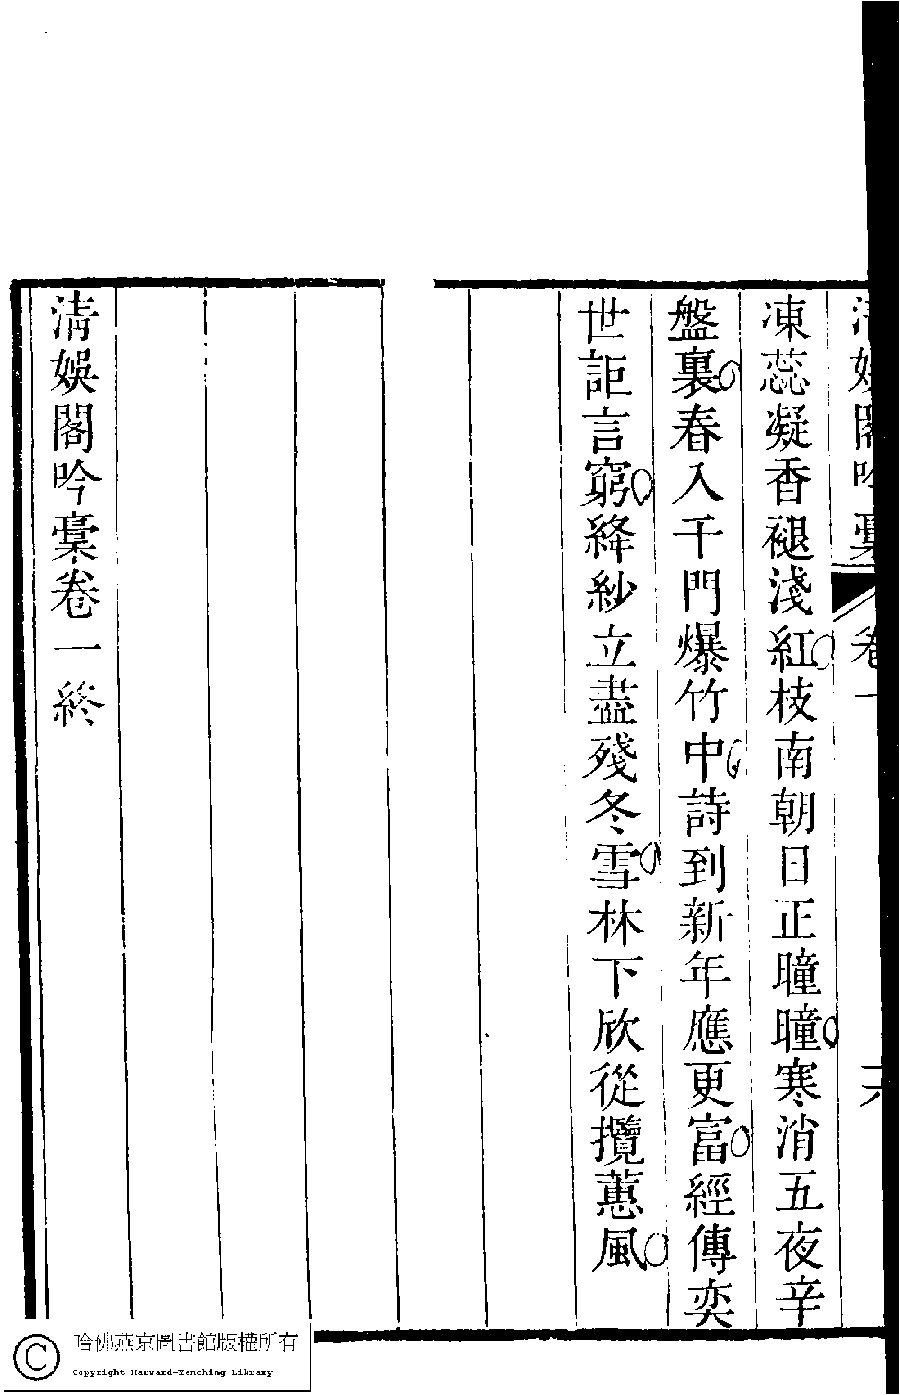 清娛閣吟稾 卷一 六
凍蕊凝香褪淺紅枝南朝日正曈曈寒消五夜辛
盤裏春入千門爆竹中詩到新年應更富經傳奕
世詎言窮絳紗立盡殘冬雪林下欣從攬蕙風
清娛閣吟稾卷一終
哈佛燕京圖書館版權所有
Copyright Harvard-Yenching Library